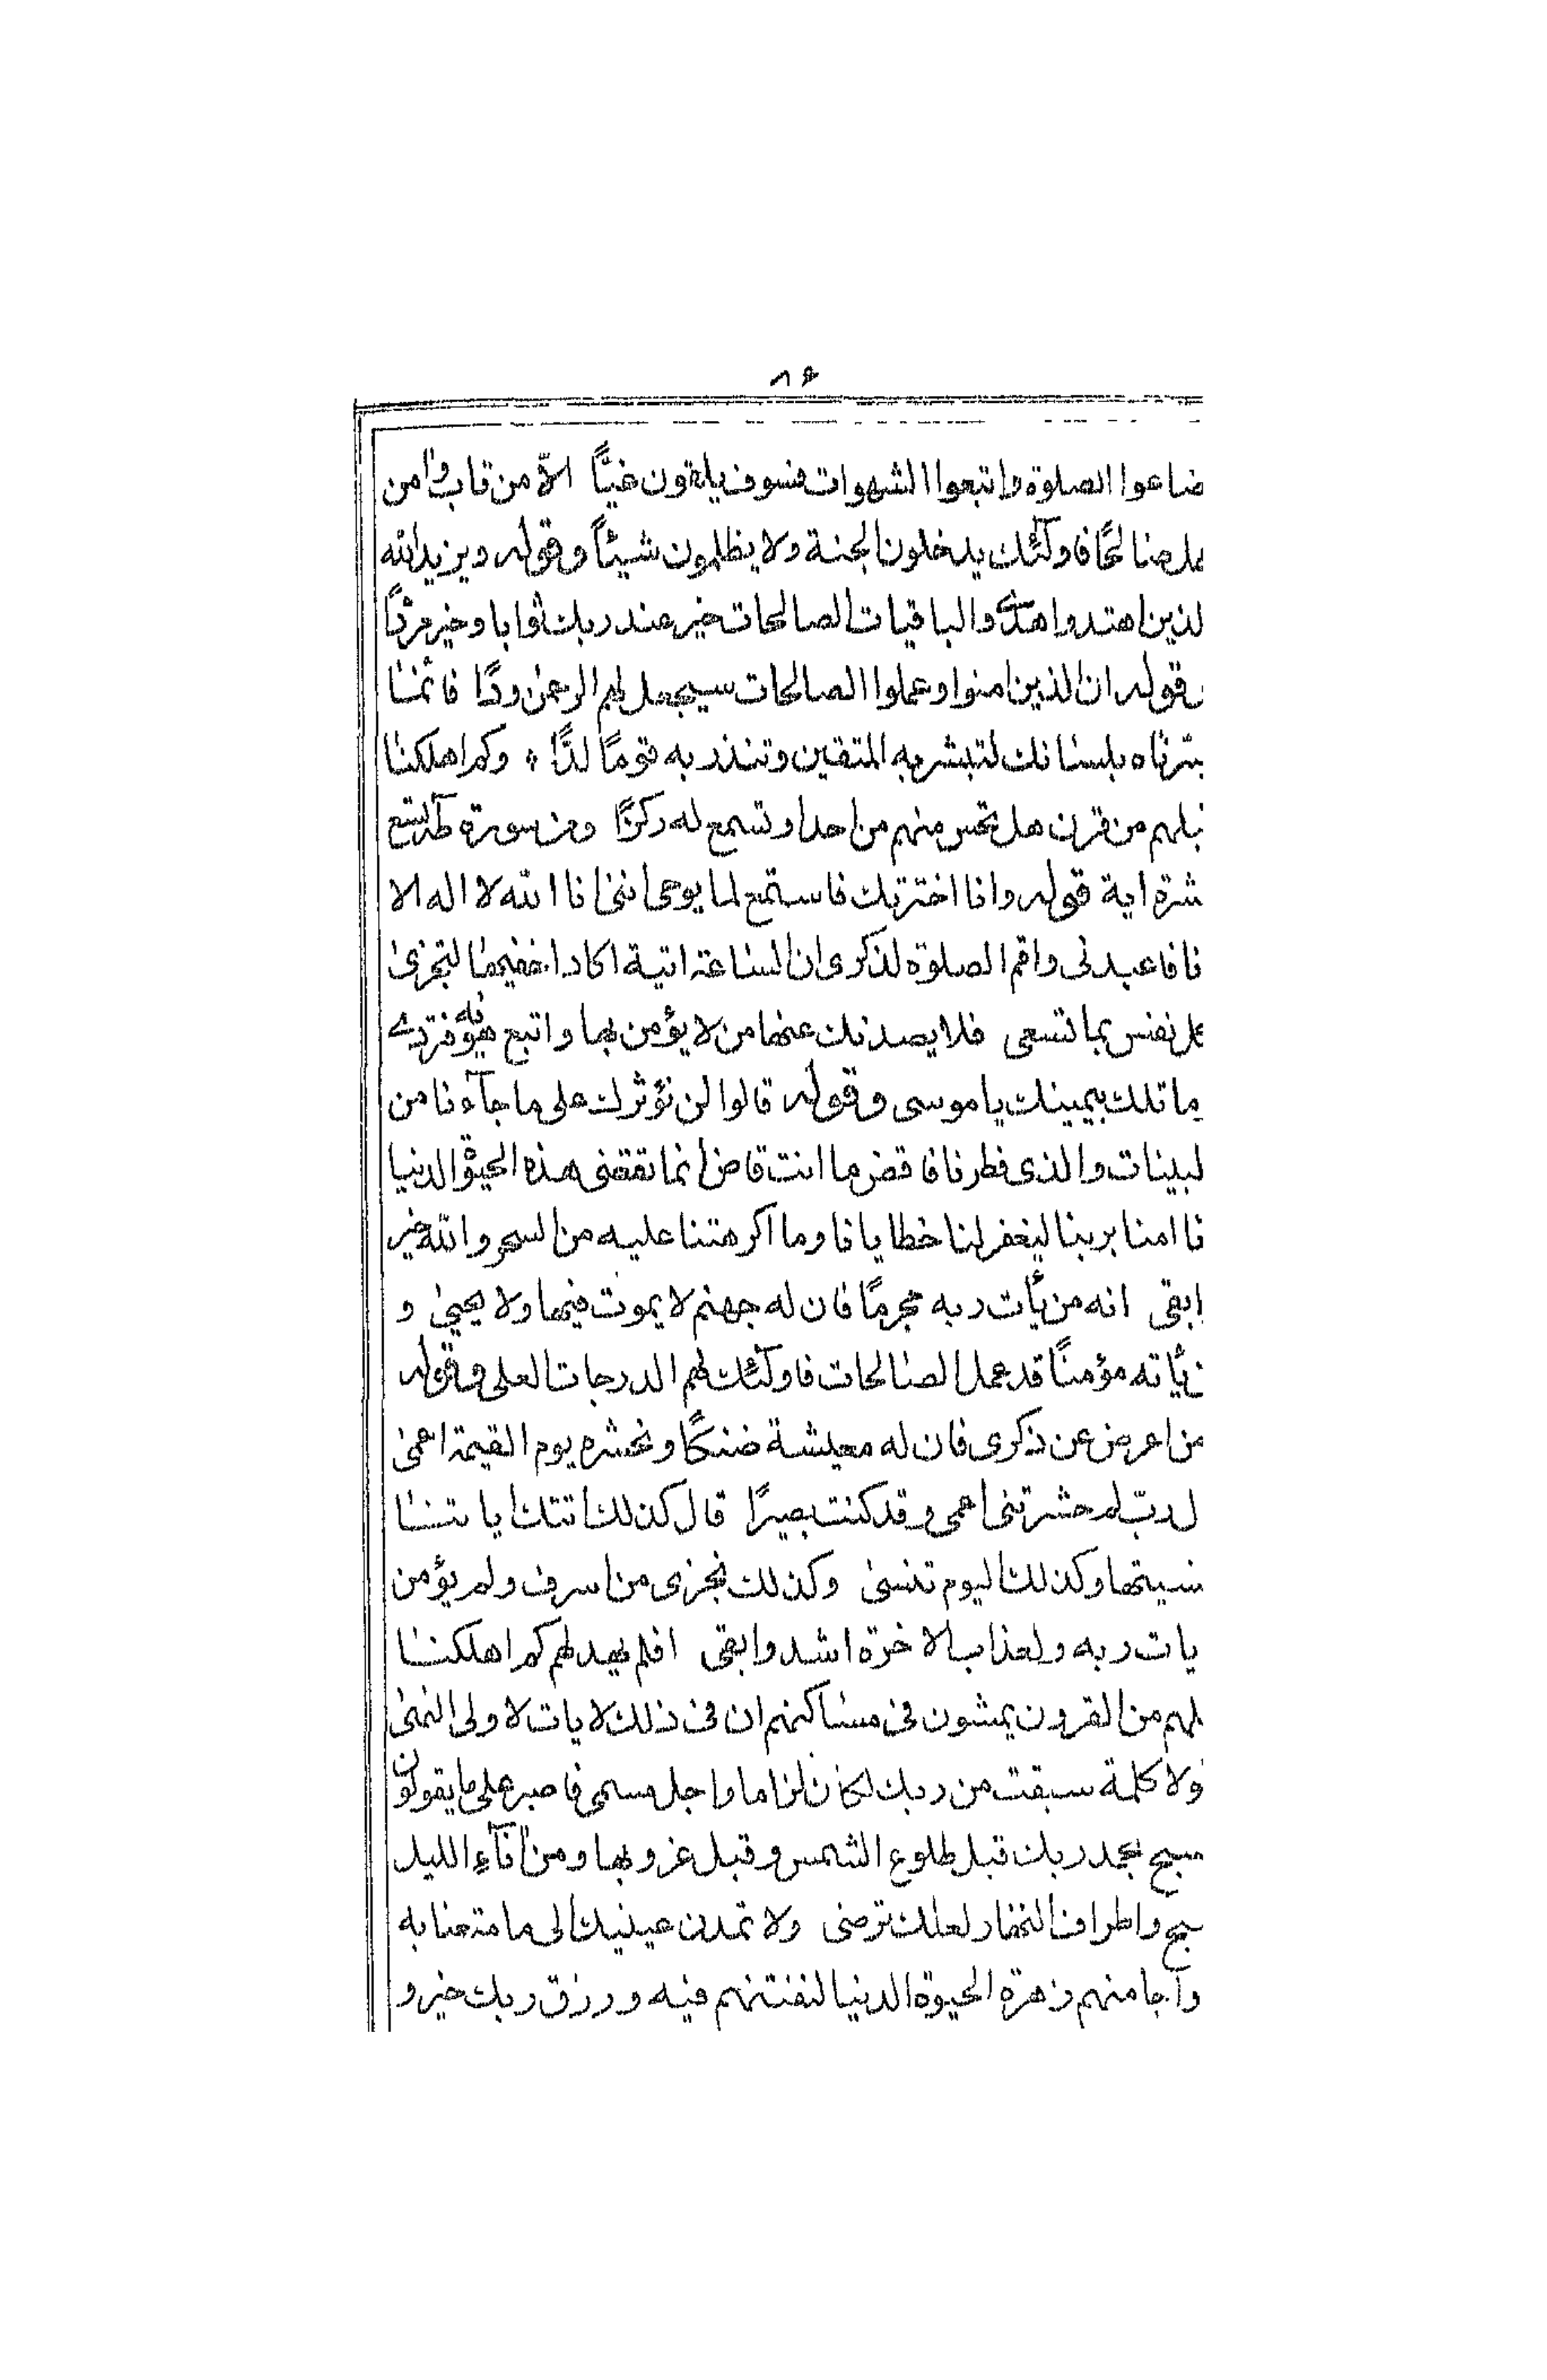 ۸۶
ضاعوا الصلوة واتبعوا الشهوات فسوف يلقون غيّاً الّا من تاب وامن
مل صالحًا فاولئك يدخلون الجنة ولا يظلمون شيئاً وقوله ويزيد الله
لذين اهتدوا هدًى والباقيات الصالحات خير عند ربك ثوابا وخير مردًّا
قوله ان الذين امنوا وعملوا الصالحات سيجعل لهم الرحمن ودًّا فانما
يسّرناه بلسانك لتبشر به المتقين وتنذر به قومًا لدًّا * وكم اهلكنا
بلهم من قرن هل تحس منهم من احد او تسمع له ركزًا ومن سورة طه تسع
شرة اية قوله وانا اخترتك فاستمع لما يوحى انني انا الله لا اله الا
نا فاعبدني واقم الصلوة لذكرى ان الساعة اتية اكاد اخفيها لتجزى
كل نفس بما تسعى فلا يصدنك عنها من لا يؤمن بها واتبع هويه فتردى
ما تلك بيمينك يا موسى وقوله قالوا لن نؤثرك على ما جآءنا من
لبينات والذى فطرنا فاقض ما انت قاض انما تقضى هذه الحيوة الدنيا
نا امنا بربنا ليغفر لنا خطايانا وما اكرهتنا عليه من السحر والله خير
ابقى انه من يأت ربه مجرمًا فان له جهنم لا يموت فيها ولا يحيى و
ن يأته مؤمنًا قد عمل الصالحات فاولئك لهم الدرجات العلى وقوله
من اعرض عن ذكرى فان له معيشة ضنكًا ونحشره يوم القيمة اعمى
ل ربّ لم حشرتنى اعمى وقد كنت بصيرًا قال كذلك اتتك اياتنا
نسيتها وكذلك اليوم تنسى وكذلك نجزى من اسرف ولم يؤمن
يات ربه ولعذاب الاخرة اشد وابقى افلم يهد لهم كم اهلكنا
بلهم من القرون يمشون فى مساكنهم ان فى ذلك لايات لاولى النهى
ولا كلمة سبقت من ربك لكان لزاما واجل مسمى فاصبر على ما يقولون
سبح بحمد ربك قبل طلوع الشمس وقبل غروبها ومن انآء الليل
سبح واطراف النهار لعلك ترضى ولا تمدن عينيك الى ما متعنا به
واجا منهم زهرة الحيوة الدنيا لنفتنهم فيه ورزق ربك خير و